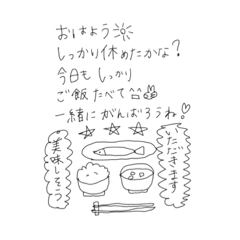 おはよう
しっかり休めたかな?
今日も しっかり
ご飯 たべて
一緒に がんばろうね!
いただきます
美味しそう